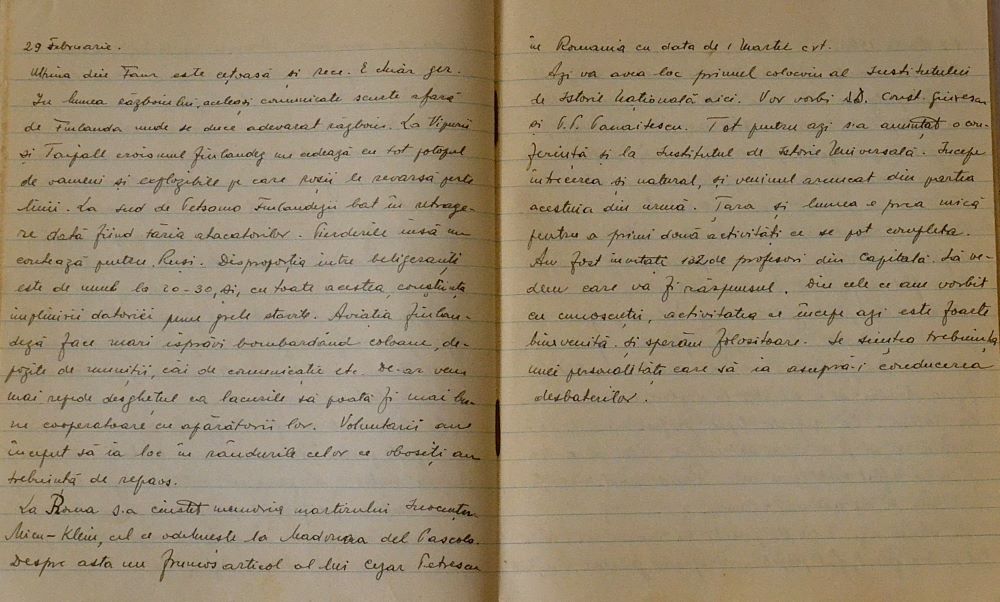 29 Februarie.
Ultima din Faur este cețoasă și rece. E chiar ger.
In lumea războiului, aceleași comunicate scurte afară
de Finlanda unde se duce adevarat războiu. La Vipurii
și Taipale eroismul finlandez nu cedează cu tot potopul
de oameni și explozibile pe care roșii le revarsă peste
linii. La sud de Petsamo Finlandejii bat în retrage-
re dată fiind tăria atacatorilor. Pierderile însă nu
contează pentru Ruși. Disproporția între beligeranți
este de unul la 20-30, și, cu toate acestea, conștiința
împlinirii datoriei pune grele stavile. Aviația finlan-
deză face mari isprăvi bombardând coloane, de-
pozite de muniții, căi de comunicație etc. De-ar veni
mai repede desghețul ca lacurile să poată fi mai bu-
ne cooperatoare cu apărătorii lor. Voluntarii au
început să ia loc în rândurile celor ce obosiți au
trebuință de repaos.
La Roma s-a cinstit memoria martirului Inocențiu
Micu-Klein, cel ce odihnește la Madonna del Pascolo.
Despre asta un frumos articol al lui Cezar Petrescu
în Romania cu data de 1 Martie crt.
Azi va avea loc primul colocviu al Institutului
de Istorie Națională aici. Vor vorbi DD. Const. Giurescu
și P.P. Panaitescu. Tot pentru azi s-a anunțat o con-
ferință și la Institutul de Istorie Universală. Incepe
întrecerea și natural, și veninul aruncat din partea
acestuia din urmă. Țara și lumea e prea mică
pentru a primi două activități ce se pot completa.
Au fost invitați 132 de profesori din Capitală. Să ve-
dem care va fi răspunsul. Din cele ce am vorbit
cu cunoscuții, activitatea ce începe azi este foarte
binevenită și sperăm folositoare. Se simția trebuința
unei personalități care să ia asupră-i conducerea
desbaterilor.